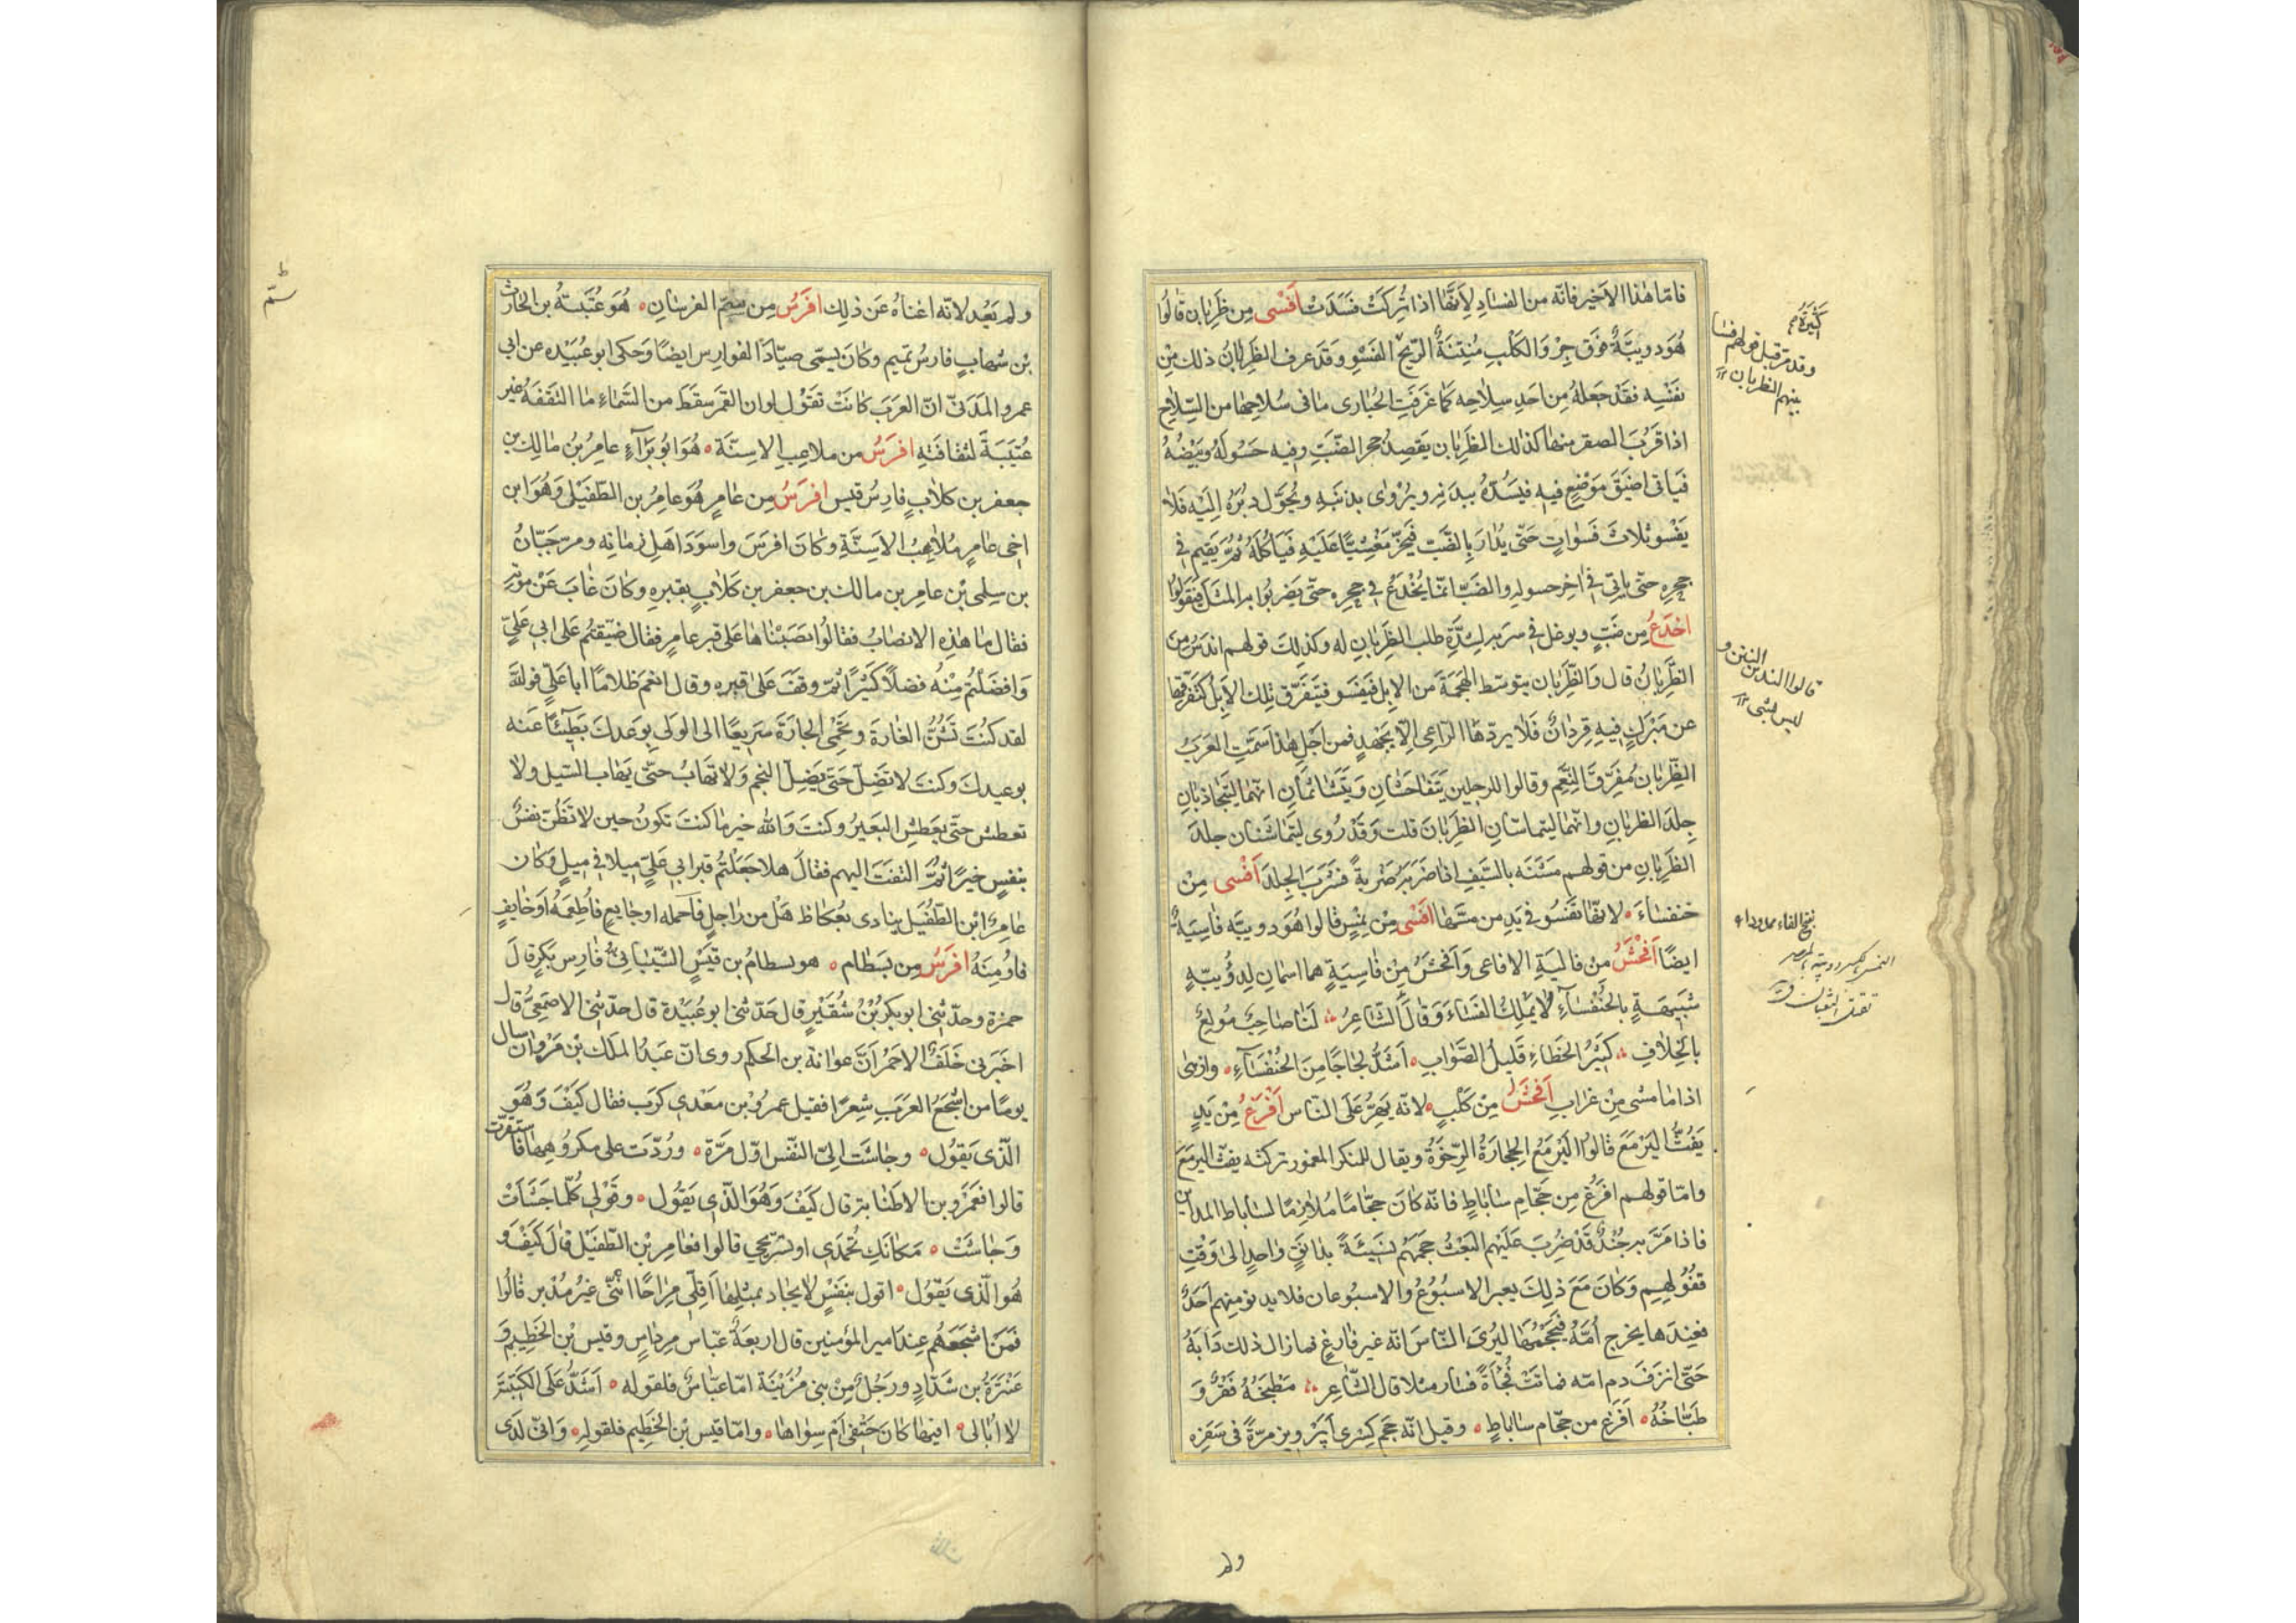 فامّا هٰذا الاَخير فانّه من الفسَادِ لِاَنَّهَا اذا تُرِكَتْ فَسَدَتْ اَفْسٰى مِن ظَرِبَان قٰالُوا
هُوَ دويبّةٌ فَوق جِرْوِ الكَلْبِ مُنتِنَةُ الرّيحْ الفَسْوِ وَقَد عرف الظَرِبَانُ ذلك مِنْ
نفسْهِ فقَد جَعَلهُ مِن احَدِ سِلَاحِه كَمَا عَرَفَتِ الحُبَارى مَا فى سُلَاحِهَا من السِّلَاحِ
اذا قَرُبَ الصقر منهَا كذٰلك الظَرِبَان يَقصِدُ جحر الضّبِّ وفيه حَسُولهُ وبَيْضُهُ
فيَأتى اضيَقَ مَوْضعٍ فيهِ فيَسُدّهُ ببدنه ويُرْوٰى بِذَنَبِهِ ويُحَوّل دبُرَهُ اِلَيْهِ فَلَا
يَفْسُو ثلَاثَ فَسَوَاتٍ حَتّى يُدَارَ بِالضَّبّ فيَخرّ مَغْشِيًّا عَلَيْهِ فيَاكُلَهُ ثُمّ يَقيم فى
جحره حَتّى يأتِىَ فى اخِر حسوله والضَبّ انّمَا يُخْدَعُ فى جحره حتّى يَضربُوا به المثَل فيَقُولُوا
اخدَعُ مِن ضَبٍّ ويوغل فى سرَبه لشِدَّةِ طلَب الظَرِبَان له وكذلِكَ قولهم اندَسُ من
الظَّرِبَانُ قال وَالظَّرِبَان يتوسّط الهَجمَةَ من الاِبل فيَفسُو فيتَفَرّق تلك الاِبلُ كتَفرّقِهَا
عن مَبْرَكٍ فيهِ قِردَانٌ فَلَا يردّهَا الرّاعى الّا بجَهدٍ فمن اجلِ هٰذا سَمّتِ العَرَبُ
الظّرِبَان مُفَرِّق النَّعَم وقالوا للرجلين يَتَفَاحَشَانِ وَيَتَشَاتمَانِ انّهمَا ليَتَجَاذبَانِ
جِلدَ الظربَانِ وانّهمَا ليتمَاسّانِ الظَرِبَانَ قلت وَقَدْ رُوى ليَتَمَاشنَان جلدَ
الظَرِبَانِ من قولهم مَشَنَه بالسّيفِ اذا ضَربَه ضَربةً قشَرَتِ الجِلدَ اَفْسٰى مِنْ
خنفسَاءَ لانهّا تفسُو فى يَدِ من مسّهَا اَفْسٰى مِنْ نِمْسٍ قالوا هُوَ دويبّه فَاسِيَةٌ
ايضًا اَفْحَشُ من فاليَةِ الافاعى وَاَفحَشُ مِنْ فَاسِيَةٍ هما اسمَانِ لِدُوُيبّةٍ
شبَيهَةٍ بالخُنْفسَاءِ لَا يَمْلِكُ الفُسَاءَ وَقَالَ الشّاعِرُ لَنَا صَاحِبٌ مُولَعٌ
بالخِلَافِ كَثيْرُ الخَطَاءِ قَليلُ الصَّوَابِ اَشَدُّ لجَاجًا مِنَ الخُنْفُسَاءِ وازهٰى
اذا مَا مشى مِنْ غرَابِ اَفحَشُ مِنْ كَلْبٍ لانّه يَهِرُّ عَلَى النّاس اَفْرَغُ مِنْ يَدٍ
يَفُتُّ اليَرْمَعَ قالُوا اليَرْمَعُ الحِجَارَةُ الرّخوَةُ ويقال للمنكسر المغموم تركته يفتّ اليرمَعَ
وامّا قولهم افرَغُ مِن حَجّامِ سَابَاطٍ فانّه كانَ حجّامًا مُلَازِمًا لسَابَاط المداين
فاذا مَرّ به جُنْدٌ قَدْ ضُرِبَ عَليْهِم البَعْثُ حجَمَهُم نسَيئَةً بدَانقٍ وَاحدٍ الى وَقْتِ
قفُولهِم وَكانَ مَعَ ذلِكَ يعبر الاسبُوعُ والاسبُوعان فلا يدنو منهم احَدٌ
فعِندَها يخرج اُمّهُ فيَحجمُهَا ليُرِىَ النّاسَ انّه غير فَارِغٍ فمَا زال ذلك دَابَهُ
حَتّى انزَفَ دم امّه فمَاتَتْ فُجْأَةً فسَار مثلا قال الشّاعِر مَطْبَخُهُ قَفْرٌ وَ
طَبّاخُهُ اَفرَغ من حجّام سَابَاطٍ وقيل انّه حجم كِسْرى اَپَرْويز مرّةً فى سَفَرِه
كَثيَرة
وقد مرّ قبل قولهم فسَا
بينهم الظربان
قالوا الندس النتن و
ليس بشئ
بفتح الفاء ممدودا
ولم
ولم يَعُد لانّه اغنَاهُ عَن ذلِك افرَسُ مِن سمّ الفرسَانِ هُوَ عُتَيبَةُ بن الحَارث
بْن شهَابٍ فارسُ تميم وكَانَ يسمّى صيّادَ الفوارِس ايضًا وَحكى ابوعُبَيْده عن ابى
عمرو المَدَنىّ انّ العرَبَ كانَتْ تقوْل لوان القَمَر سقَط من السَّماءِ مَا التقفَهُ غير
عُتَيبَةَ لثقَافَتِهِ افرَسُ من ملاعِبِ الاسِنّة هُوَ ابُو بَرَآءٍ عامِرُ بنُ مَالِك بن
جعفر بن كلَابٍ فارِسُ قيس افرَسُ مِن عَامِرٍ هُوَ عامِرُ بن الطّفَيْل وَهُوَ ابن
اخى عَامِرٍ مُلَاعِبُ الاَسِنَّةِ وكَانَ افرَسَ واسوَدَ اهَلِ زمَانِه ومرّ حَبّانُ
بن سلمى بْن عامِر بن مالك بن جعفر بن كَلَابٍ بقبرِهِ وكَانَ غَابَ عَنْ موتِه
فقال مَا هٰذِهِ الانصَابُ فقالُوا نصَبْنَاهَا عَلى قبر عامرٍ فقال ضيّقتُم عَلى ابى عَلىٍّ
وَافضَلتُم مِنْهُ فضلًا كثيرًا ثمّ وقفَ عَلى قبره وقال انعم ظلَامًا ابا عَلىٍّ فوَاللّهِ
لقد كنُتَ تَشُنُّ الغَارةَ وتَحمِى الجارَةَ سَريعًا الى الولى بوَعدكَ بَطيئًا عَنه
بوعيدكَ وكنتَ لا تضِلّ حَتّى يَضِلّ النجم وَلا تَهَابُ حتّى يَهَاب السّيل ولا
تعطش حَتّى يعَطش البَعَيرُ وكنتَ وَاللّه خير مَا كنتَ تكونُ حين لا تَظُنّ نفسٌ
بنفسٍ خيرًا ثُمّ التفت اليهم فقالَ هلا جَعَلتُم قبر ابى عَلىٍّ ميلًا فى ميلٍ وكَان
عَامِرُ ابْن الطّفُيَل ينادى بعُكاظ هَلْ من رَاجلٍ فاَحمله او جَايعٍ فاُطعِمَهُ اوَ خَايفٍ
فاُومِنَهُ افرَسُ مِن بسطَام هو بسطامُ بن قَيْسٍ الشّيْبَانىّ فَارِس بَكرٍ قالَ
حمزة وحدّثنى ابو بكر بْنُ شُقَيْرٍ قال حَدّثنى ابو عُبَيْدة قال حدّثنى الاصمَعِىّ قال
اخبَرنى خَلَفُ الاحَمَرُ اَنّ عوانة بن الحكم روى انّ عَبدُ الملَك بن مَرْوان سال
يومًا من اشْجَعُ العَرَبِ شِعرًا فقيل عمرو بن مَعْدى كرَب فقال كَيْفَ وَهُوَ
الّذى يَقوُل وجَاشَت اِلىّ النّفس اوّل مَرَّة ورُدّت على مكروُهِهَا فاستقرّت
قالوا فعَمَرو بن الاطنَابة قال كَيْفَ وَهُوَ الّذى يَقوُل وقَوْلى كُلّمَا جَشَاَتْ
وَجَاشَتْ مَكانَكِ تُحمَدى او تستَرِيحى قالوا فعَامِر بْن الطّفيَل قال كَيْفَ وَ
هُوَ الّذى يَقُول اقول بنفْسٍ لَا يجَاد بمثلِهَا اَقِلّى مِرَاحًا انّنى غيرُ مُدْبر قالُوا
فَمَن اشجَعَهُم عِندَ امير المؤمنين قال اربعَةٌ عبّاس مِردَاسٍ وقيس بْن الخَطِيم وَ
عنترَةُ بن شَدّادٍ ورَجُلٌ مِنْ بنى مُزَيْنَة امّا عبَّاسٌ فلقوله اَشدُّ عَلَى الكَتيبَة
لَا اُبَالى افيهَا كانَ حَتْفى اَم سِواهَا وامّا قيس بْن الخَطِيم فلقوله وَانّى لَدَى